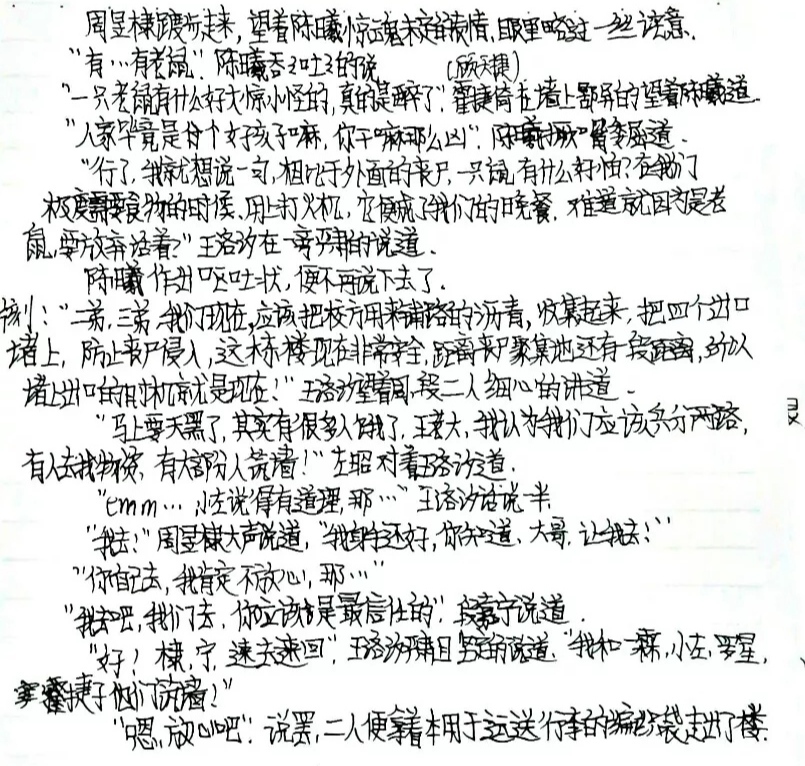 周昱棣踱步走来，望着陈曦惊魂未定的表情，眼里略过一丝诧意．
"有…有老鼠"．陈曦吞吞吐吐的说
（顾天捷）
"一只老鼠有什么好大惊小怪的，真的是醉了"．霍捷倚在墙上鄙异的望着陈曦道．
"人家毕竟是个女孩子嘛，你干嘛那么凶"．陈曦撅嘴委屈道．
"行了，我就想说一句，相比于外面的丧尸，一只鼠有什么好怕？在我们
极度需要食物的时候，用上打火机，它便成了我们的晚餐．难道就因为是老
鼠，要放弃活着？"王洛汐在一旁严肃的说道．
陈曦作出呕吐状，便不再说下去了．
"二弟，三弟，我们现在，应该把校方用来铺路的沥青，收集起来，把四个出口
堵上，防止丧尸侵入，这栋楼现在非常安全，距离丧尸聚集地还有一段距离，所以
堵上出口的时机就是现在！"王洛汐望着周，段二人细心的讲道．
"马上要天黑了，其实有很多人饿了，王老大，我认为我们应该兵分两路，
有人去找物资，有大部分人筑墙！"左昭对着王洛汐道．
"emm…小左说得有道理，那…"王洛汐话说一半．
"我去！"周昱棣大声说道，"我身手还好，你知道，大哥，让我去！"
"你自己去，我肯定不放心，那…"
"我去吧，我们去，你应该是最信任的"．段嘉宁说道．
"好！棣，宁，速去速回"．王洛汐严肃且坚定的说道．"我和一霖，小左，罗星，
霍捷子他们筑墙！"
"嗯，放心吧"．说罢，二人便拿着本用于运送行李的编织袋走出了楼．